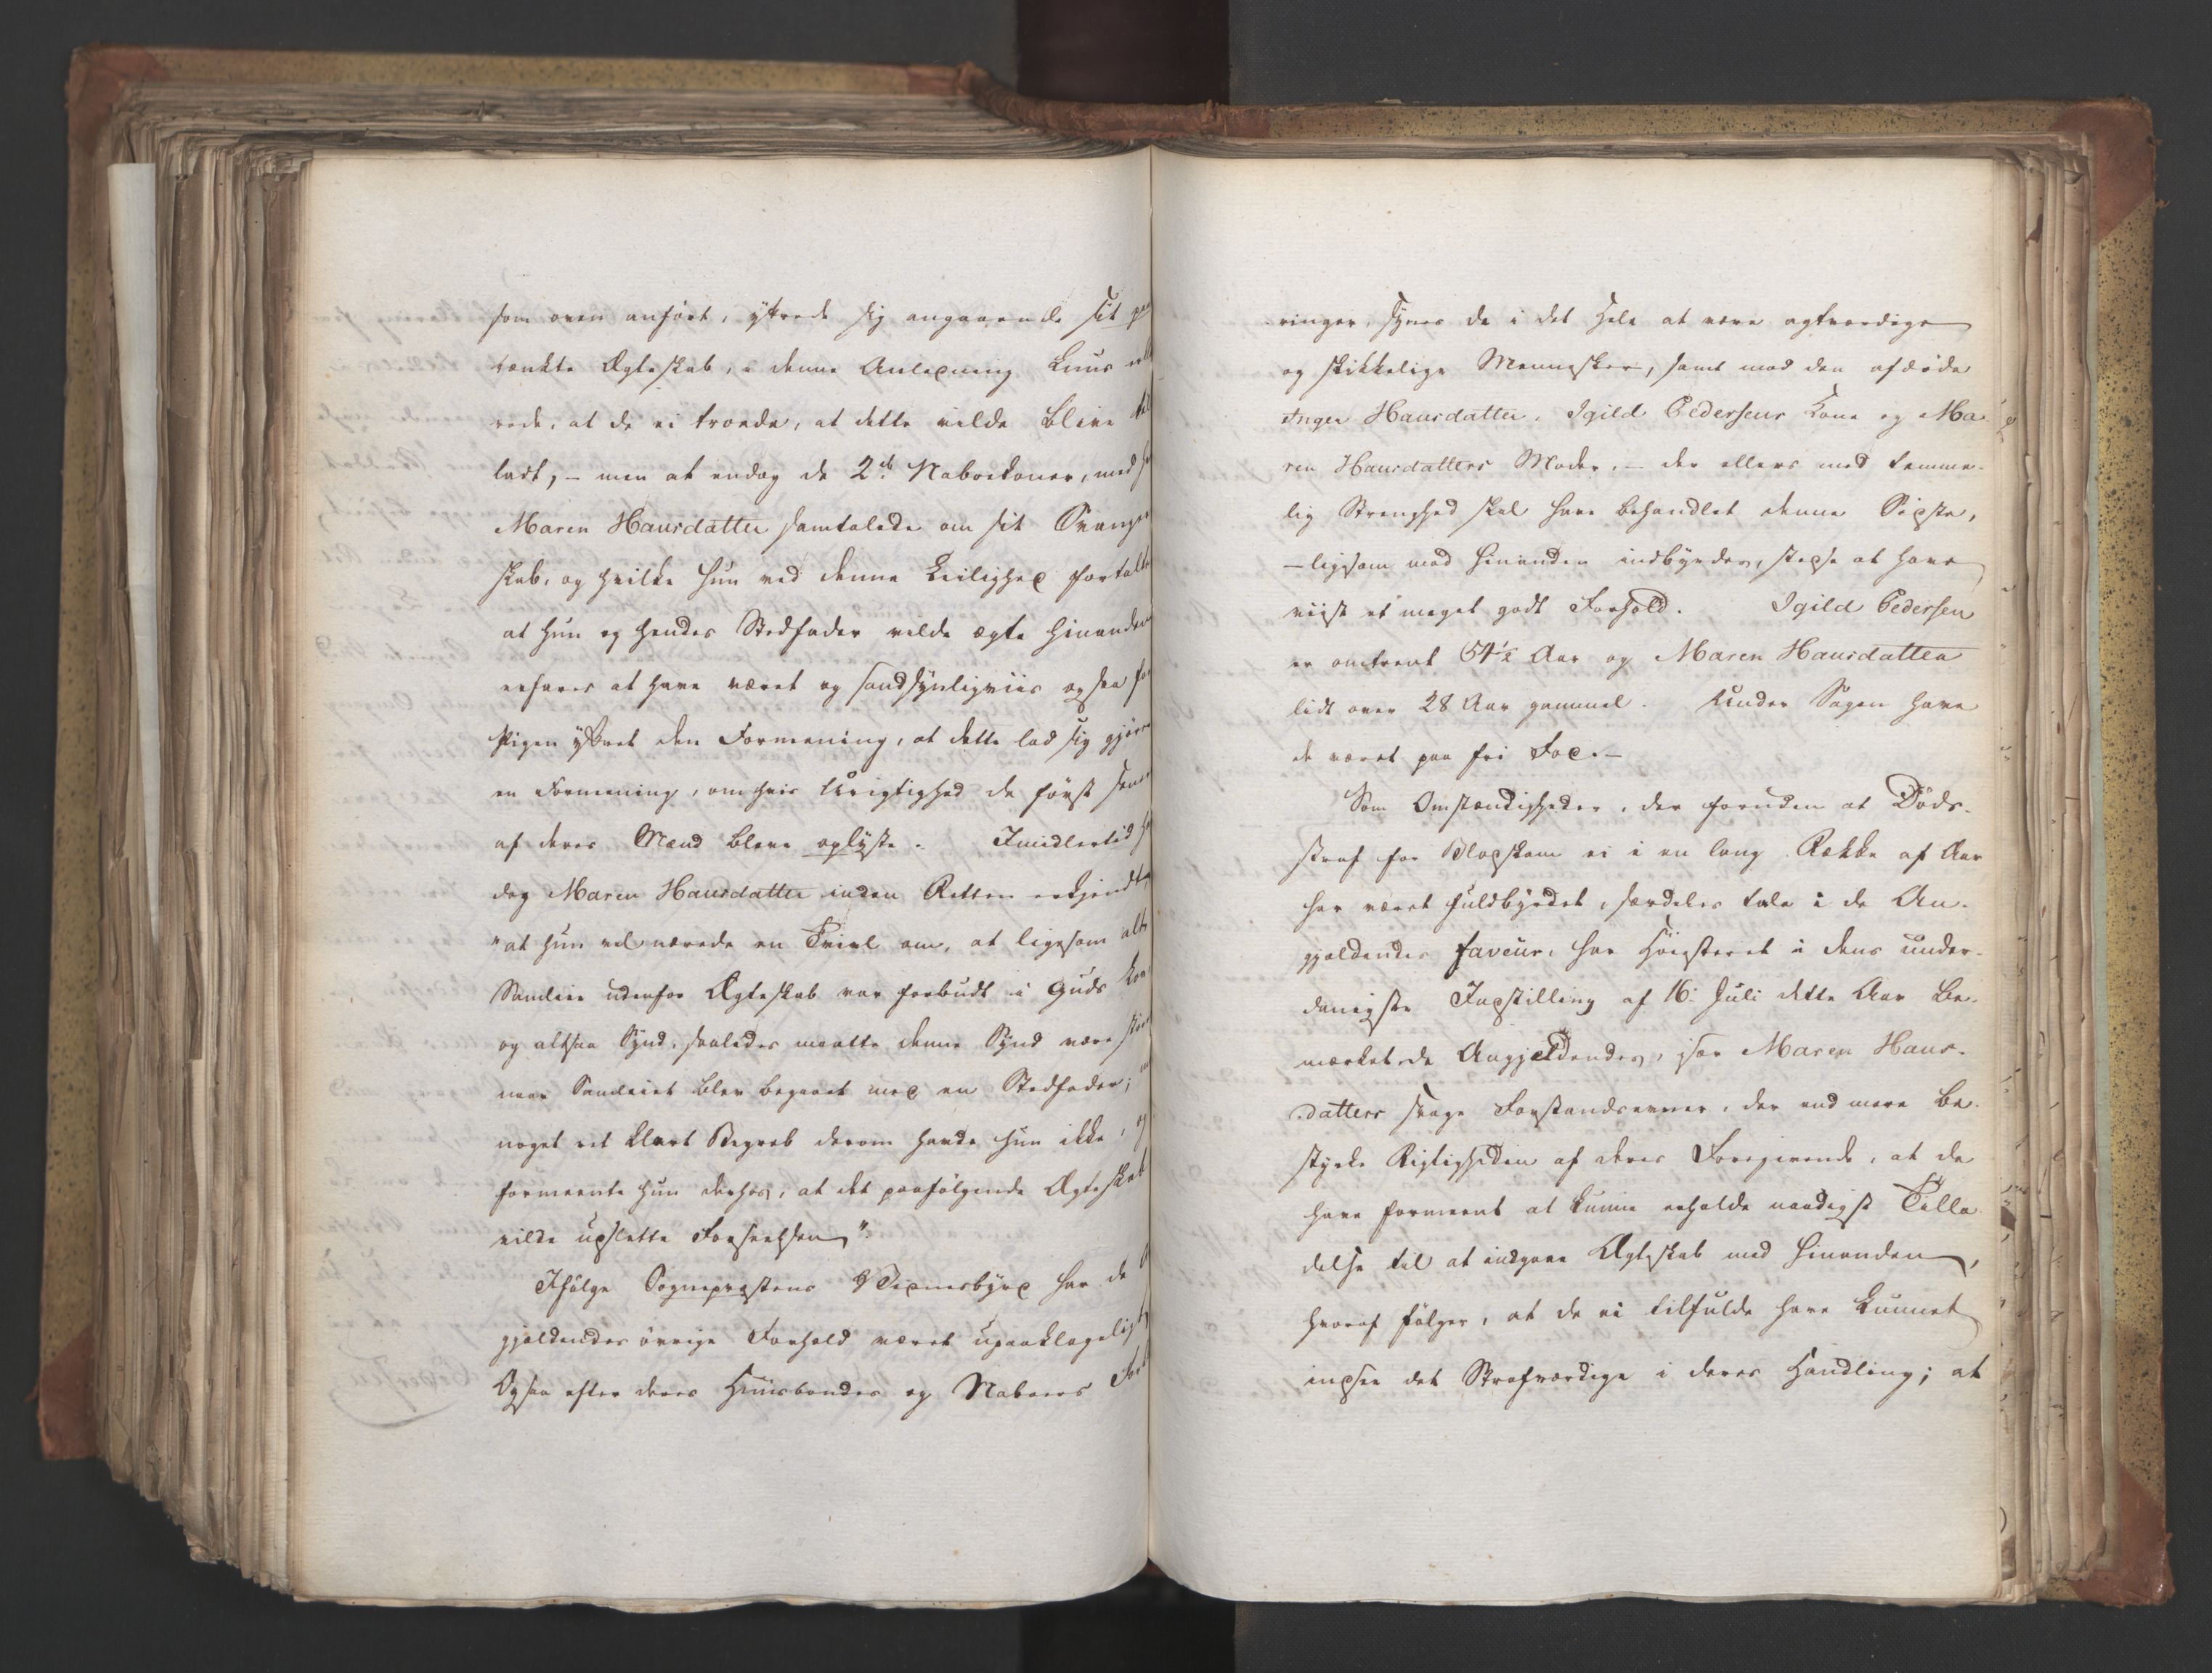 som oven anført, yttrede sig angaaende sit paa
tænkte Ægteskab, i denne Anledning kuns
rede, at de ei troede, at dette vilde blive til
ladt, – men at endog de 2de Naboekoner, med
Maren Hansdatter samtalede om sit Svanger
skab, og hvilke hun ved denne Leilighed fortalte
at hun og hendes Stedfader vilde ægte hinanden
erfares at have været og sandsynligviis ogsaa for
Pigen yttret den Formening, at dette lod sig gjøre
en Formening, om hvis Urigtighed de først senere
af deres Mænd bleve oplyste. Imidlertid
dog Maren Hansdatter inden Retten erkjendt,
"at hun vel nærede en Tvivl om, at ligesom alt
Samleie udenfor Ægteskab var forbudt i Guds
og altsaa Synd, saaledes maatte denne Synd være større
naar Samleiet blev begaaet med en Stedfader;
noget ret klart Begreb derom havde hun ikke, og
formeente hun derhos, at det paafølgende Ægteskab
vilde udslette Forseelsen".
Ifølge Sognepræstens Vidnesbyrd har de
gjældendes øvrige Forhold været upaaklageligt,
Ogsaa efter deres Huusbondes og Naboers
ringer, synes de i det Hele at være agtværdige
og skikkelige Mennesker, samt mod den afdøde
Inger Hansdatter, Igild Pedersens Kone og Ma-
ren Hansdatters Moder, – der ellers med temme-
lig Strenghed skal have behandlet denne Sidste,
– ligesom mod hinanden indbyrdes, stedse at have
viist et meget godt Forhold. Igild Pedersen
er omtrent 54½ Aar og Maren Hansdatter
lidt over 28 Aar gammel. Under Sagen have
de været paa fri Fod. –
Som Omstændigheder, der foruden at Døds-
straf for Blodskam ei i en lang Række af Aar
har været fuldbyrdet, særdeles tale i de An-
gjældendes faveur, har Høiesteret i dens under-
danigste Indstilling af 16. Juli dette Aar be-
mærket de Angjeldendes, især Maren Hans-
datters svage Forstandsevner, der end mere be-
styrke Rigtigheden af deres Foregivende, at de
have formeent at kunne erholde naadigst Tilla-
delse til at indgaae Ægteskab med hinanden,
hvoraf følger, at de ei tilfulde have kunnet
indsee det Strafværdige i deres Handling; at